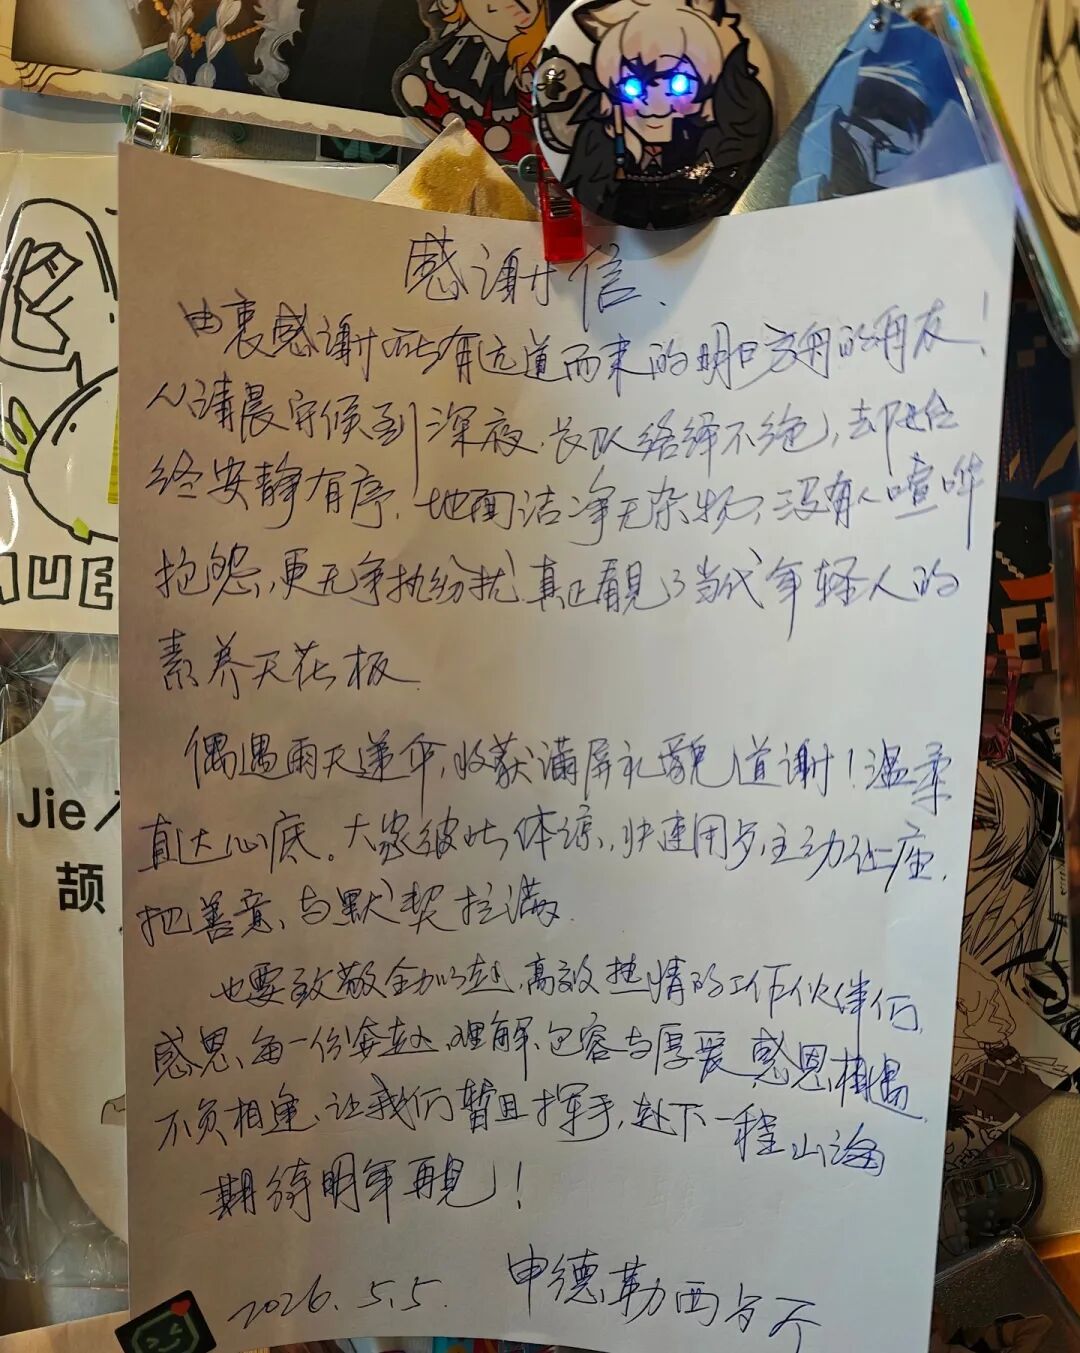 感谢信
由衷感谢所有远道而来的明日方舟的朋友!
从清晨守候到深夜、长队络绎不绝,却始
终安静有序、地面洁净无杂物、没有人喧哗
抱怨、更无争执纷扰、真正看見了当代年轻人的
素养天花板
偶遇雨天递伞,收获满屏礼貌道谢!温柔
直达心底。大家彼此体谅、快速用歺、主动让座、
把善意、与默契拉满
也要致敬全力以赴、高效热情的工作伙伴们
感恩、每一份奔赴、理解、包容与厚爱、感恩相遇
不负相逢、让我们暂且挥手,赴下一程山海
期待明年再見!
2026.5.5.
申德勒西歺厅
Jie
颉
NUE